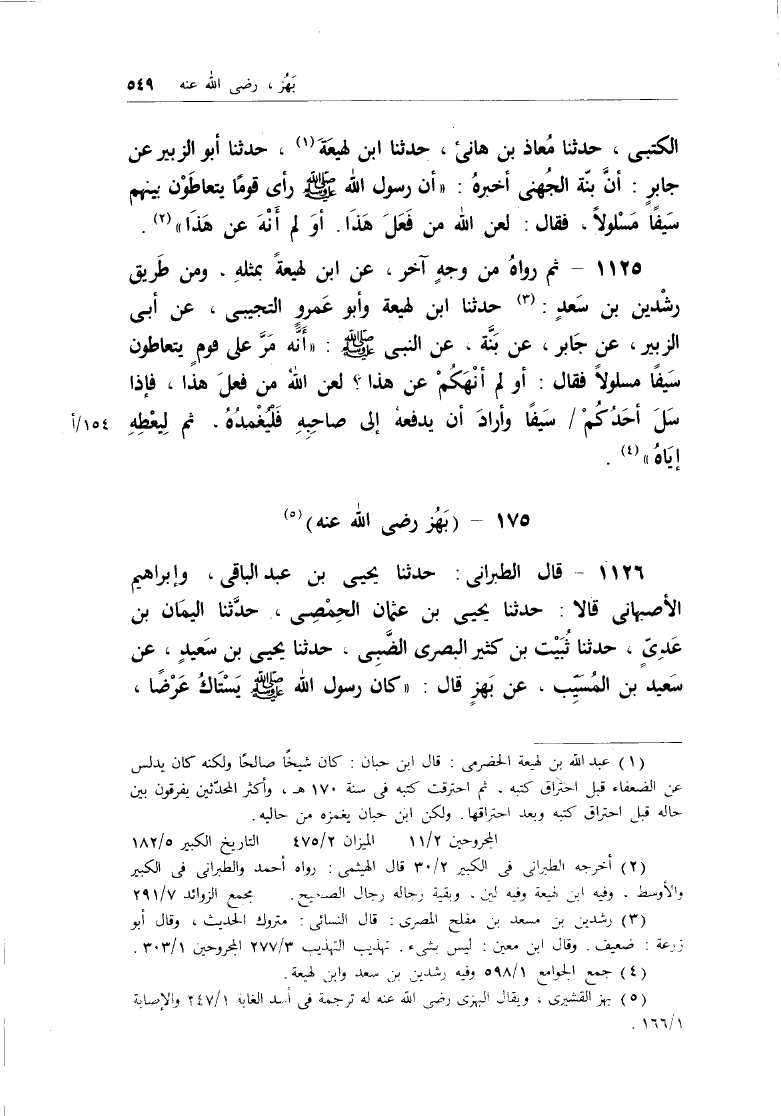 بَهُز ، رضى الله عنه ٥٤٩
الكتبى ، حدثنا مُعاذ بن هانئ ، حدثنا ابن لهيعَة(١) ، حدثنا أبو الزبير عن
جابرٍ : أنَّ بنّة الجُهنى أخبرهُ : «أن رسول الله ﷺ رأى قومًا يتعاطَوْن بينهم
سَيفًا مَسْلولاً ، فقال : لعن الله من فَعَلَ هَذَا. أو لم أَنْهَ عن هَذَا»(٢) .
١١٢٥ - ثم رواهُ من وجهٍ آخر ، عن ابن لهيعةَ بمثلهِ . ومن طَريق
رشْدين بن سَعدٍ :(٣) حدثنا ابن لهيعة وأبو عَمرو التجيبى ، عن أبى
الزبير ، عن جَابر ، عن بَنَّة ، عن النبى ﷺ : «أنَّه مَرَّ على قومٍ يتعاطون
سَيفًا مسلولاً فقال : أو لم أنْهَكُمْ عن هذا ؟ لعن اللهُ من فعلَ هذا ، فإذا
سَلَ أحَدُكُمْ / سَيفًا وأرادَ أن يدفعهُ إلى صاحِبِهِ فَلْيُغْمدُهُ . ثم لِيعْطِهِ ١٥٤/أ
إيَاهُ»(٤) .
١٧٥ - (بَهُز رضى الله عنه)(٥)
١١٢٦ - قال الطبرانى : حدثنا يحيى بن عبد الباقى ، وإبراهيم
الأصبهانى قالا : حدثنا يحيى بن عثمان الحمْصى ، حدَّثنا اليمَان بن
عَدِىّ ، حدثنا ثُبَيْت بن كثير البصرى الضَّبى ، حدثنا يحيى بن سَعيدٍ ، عن
سَعيد بن المُسَيّب ، عن بَهزٍ قال : «كان رسول الله ﷺ يَسْتَاكُ عَرْضًا ،
(١) عبد الله بن لهيعة الحضرمى : قال ابن حبان : كان شيخًا صالحًا ولكنه كان يدلس
عن الضعفاء قبل احتراق كتبه . ثم احترقت كتبه فى سنة ١٧٠ هـ ، وأكثر المحدّثين يفرقون بين
حاله قبل احتراق كتبه وبعد احتراقها. ولكن ابن حبان يغمزه من حاليه.
المجروحين ١١/٢ الميزان ٤٧٥/٢ التاريخ الكبير ١٨٢/٥
(٢) أخرجه الطبرانى فى الكبير ٣٠/٢ قال الهيثمى : رواه أحمد والطبرانى فى الكبير
والأوسط . وفيه ابن لهيعة وفيه لين . وبقية رجاله رجال الصحيح. مجمع الزوائد ٢٩١/٧
(٣) رشدين بن مسعد بن مفلح المصرى : قال النسائى : متروك الحديث ، وقال أبو
زرعة : ضعيف. وقال ابن معين : ليس بشىء. تهذيب التهذيب ٢٧٧/٣ المجروحين ٣٠٣/١ .
(٤) جمع الجوامع ٥٩٨/١ وفيه رشدين بن سعد وابن لهيعة.
(٥) بهز القشيرى ، ويقال البهزى رضى الله عنه له ترجمة فى أسد الغابة ٢٤٧/١ والإصابة
١٦٦/١ .